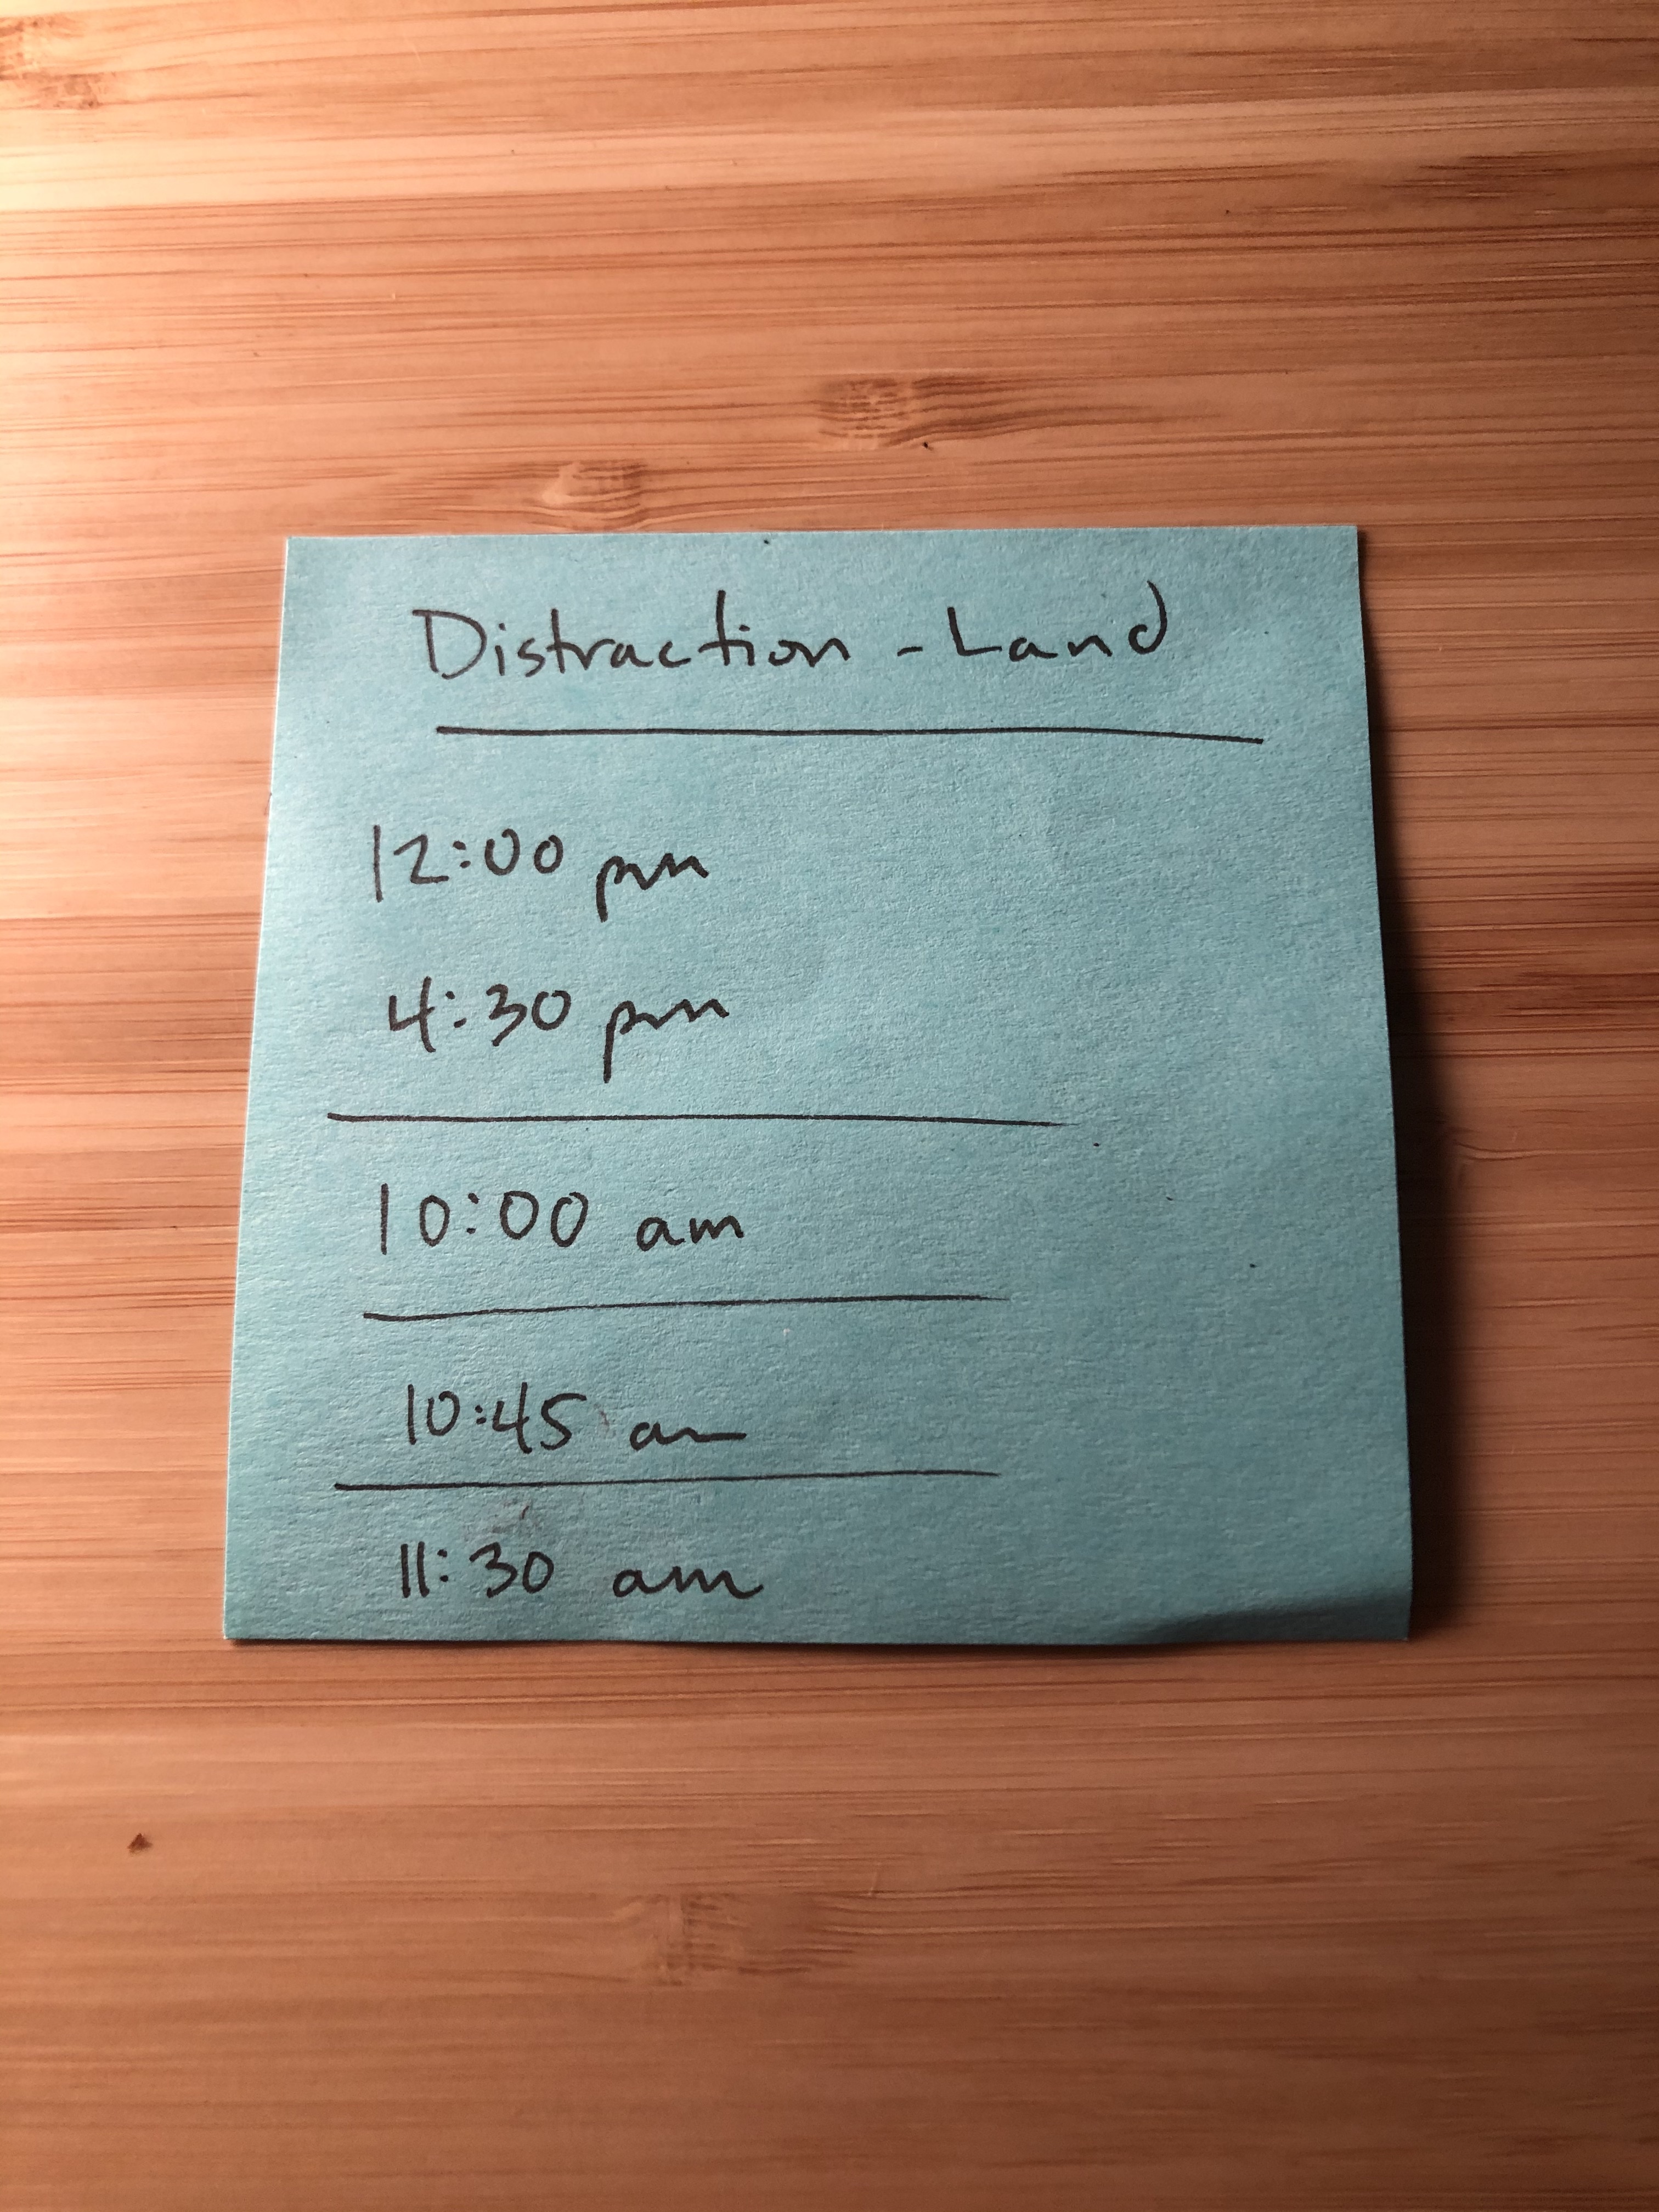 Distraction - Land
12:00 pm
4:30 pm
10:00 am
10:45 am
11:30 am